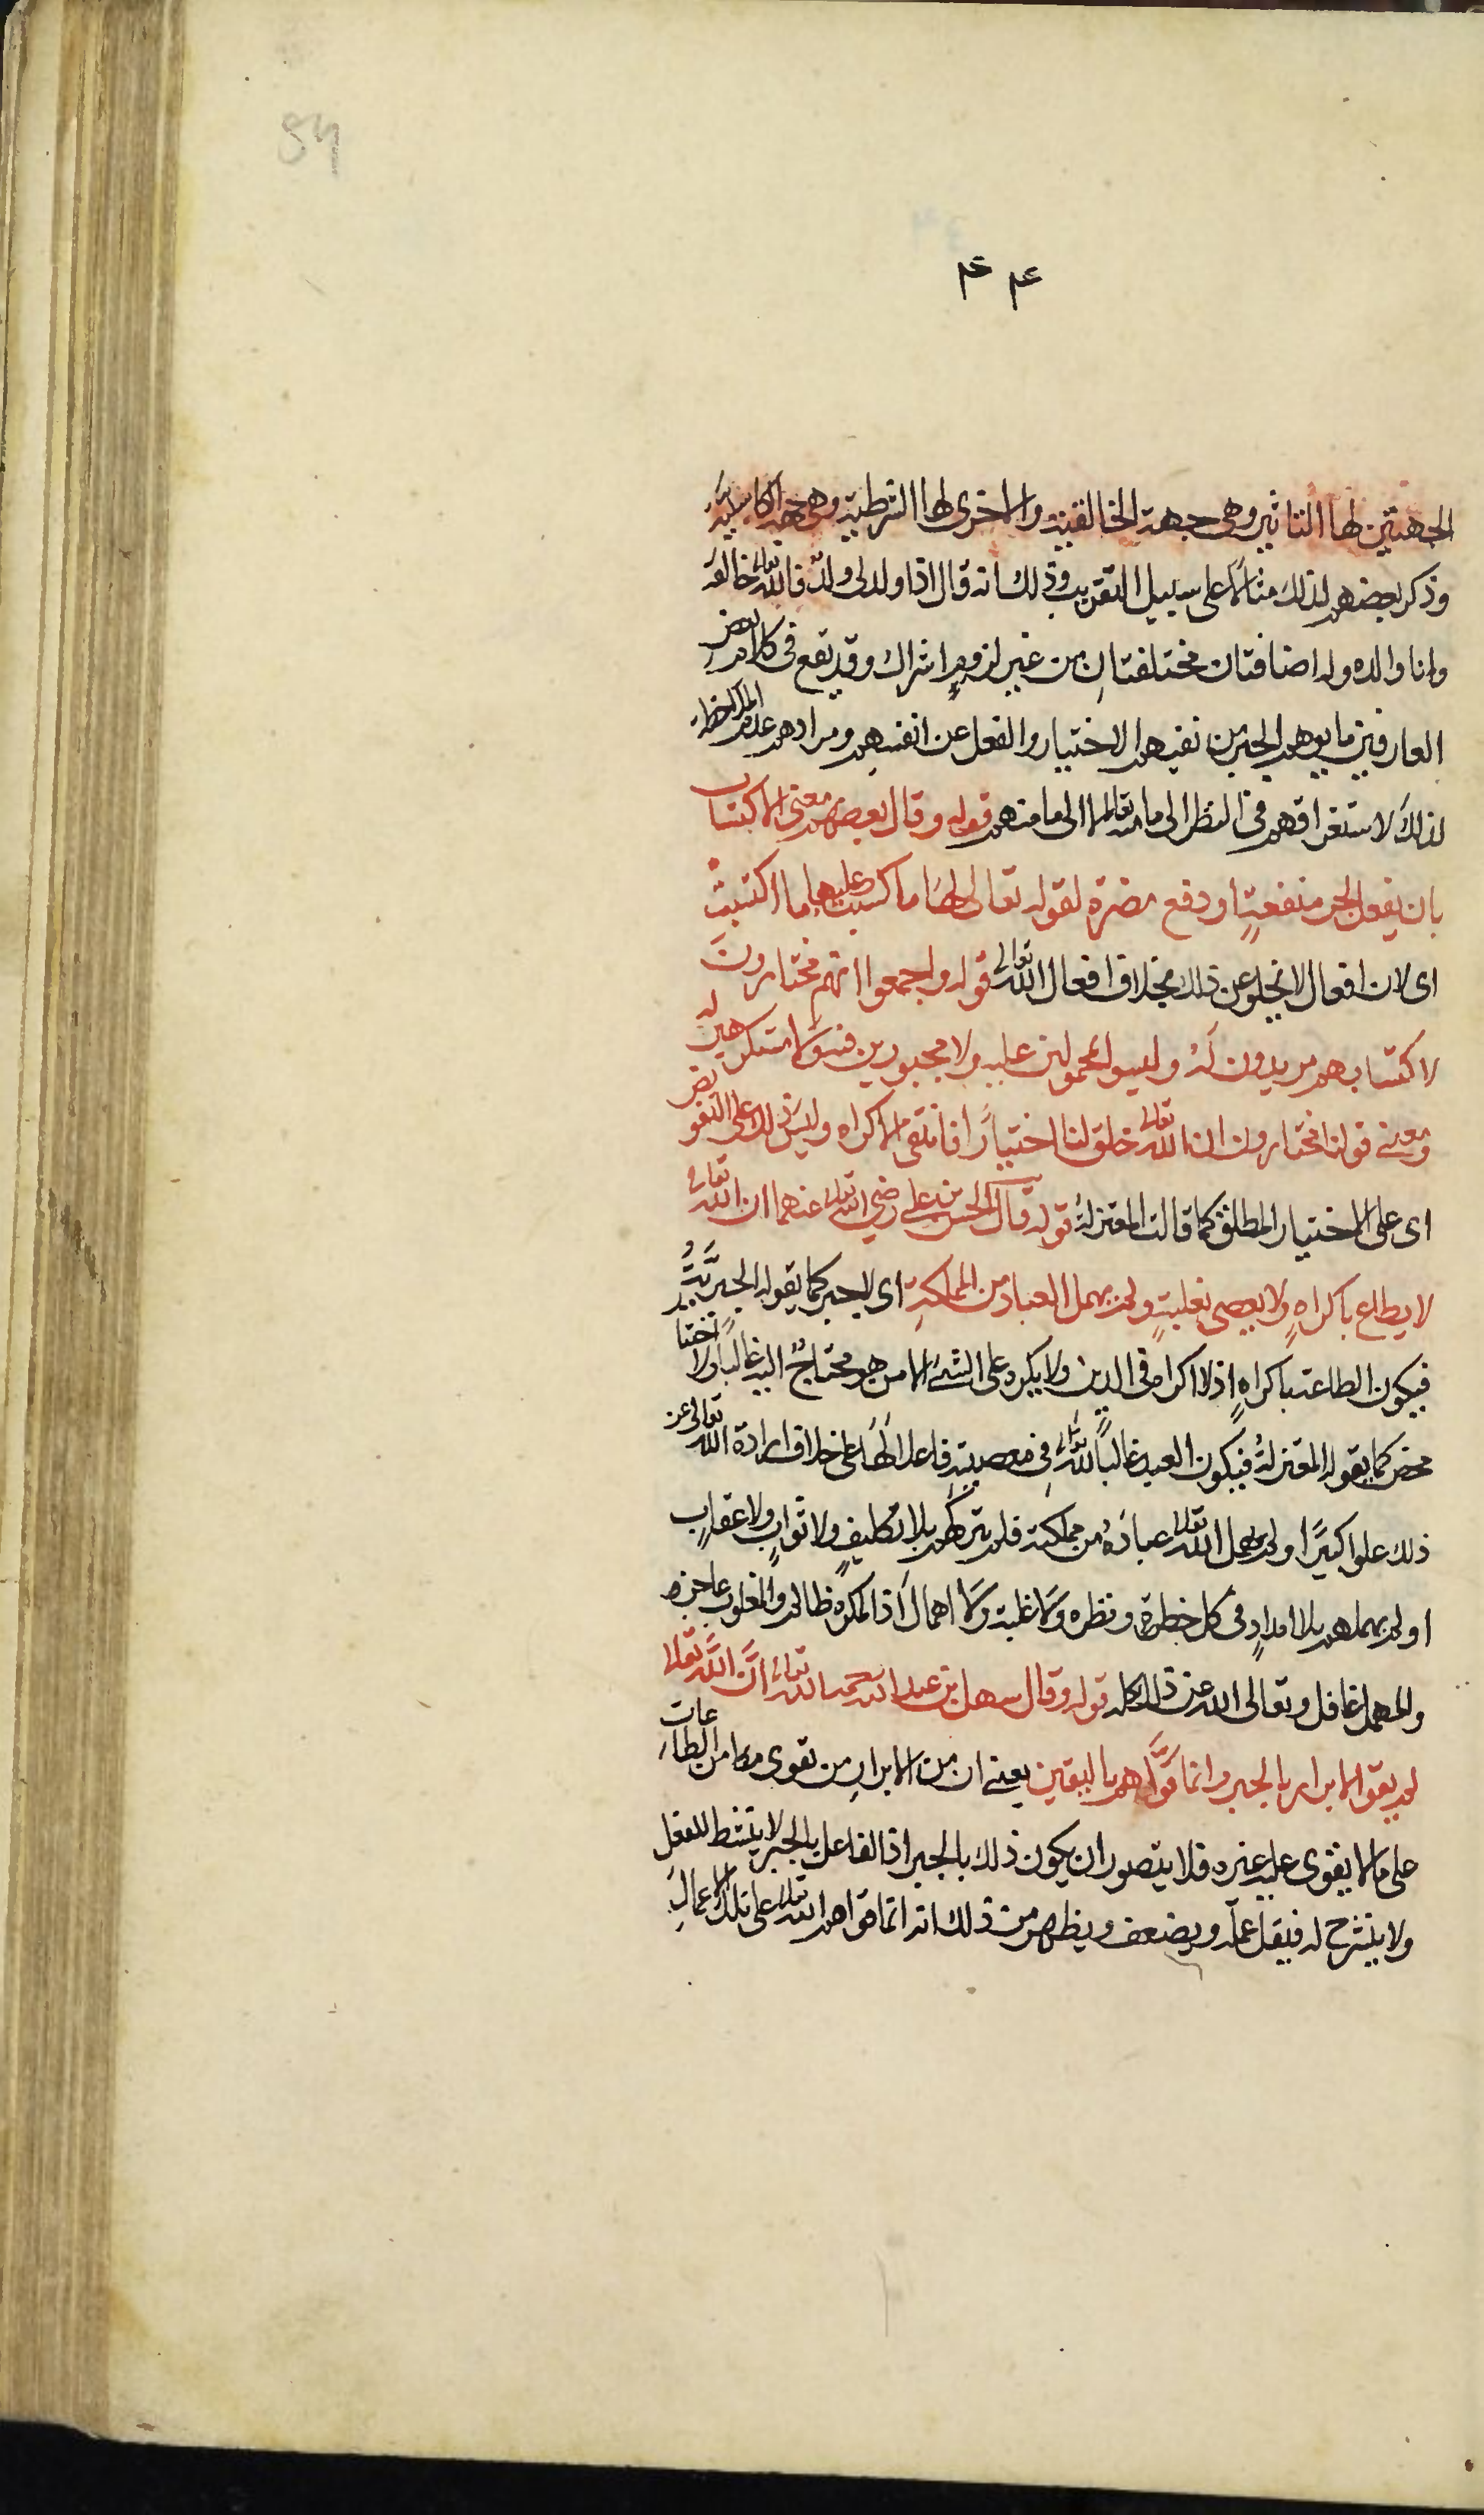 94
۴۴
الجهتين لها التاثير وهى جهة الخالقية والاخرى لها الشرطية وهى جهة الكاسبية
وذكر بعضهم لذلك مثالا على سبيل التقريب وذلك انه قال اذا ولد لى ولد فالله تعالى خالقه
وانا والده وله اضافتان مختلفتان من غير لزوم اشراك وقد تقع فى كلام بعض
العارفين ما يوهم الجبر من نفيهم الاختيار والفعل عن انفسهم ومرادهم عدم الملاحظة
لذلك لاستغراقهم فى النظر الى ما منه تعالى لا الى ما منهم قوله وقال بعضهم معنى الاكتساب
بان يفعل لجر منفعة او دفع مضرة لقوله تعالى لها ما كسبت وعليها ما اكتسبت
اى لان افعال لا تخلو عن ذلك بخلاف افعال الله تعالى قوله واجمعوا انهم مختارون
لاكتسابهم مريدون له وليسوا بمحمولين عليه ولا مجبورين فيه ولا مستكرهين له
ومعنى قولنا مختارون ان الله تعالى خلق لنا اختيارا فانتفى الاكراه وليس ذلك على التفويض
اى على الاختيار المطلق كما قالت المعتزلة قوله قال الحسن بن على رضى الله تعالى عنهما ان الله تعالى
لا يطاع باكراه ولا يعصى بغلبة ولم يهمل العباد من المملكة اى لا يجبر كما يقوله الجبرية
فيكون الطاعة باكراه اذ لا اكراه فى الدين ولا يكره على الشئ الا من هو محتاج اليه غالبا ولا اختيار
محض كما يقوله المعتزلة فيكون العبد غالبا لله تعالى فى معصيته فاعلا لها على خلاف ارادة الله تعالى عن
ذلك علوا كبيرا ولم يهمل الله تعالى عباده من مملكته فلم يتركهم بلا تكليف ولا ثواب ولا عقاب
او لم يهملهم بلا امداد فى كل خطرة ونظره ولا غلبة ولا اهمال اذ المكره ظالم والمغلوب عاجز
والمهمل غافل وتعالى الله عن ذلك كله قوله وقال سهل بن عبد الله رحمه الله تعالى ان الله تعالى
لم يقو الابرار بالجبر وانما قواهم باليقين يعنى ان من الابرار من تقوى من الطاعات
على ما لا يقوى عليه غيره فلا يتصور ان يكون ذلك بالجبر اذ الفاعل بالجبر لا ينشط للفعل
ولا ينشرح له فيقل عمله ويضعف ويظهر من ذلك انه انما قواهم الله تعالى على تلك الاعمال